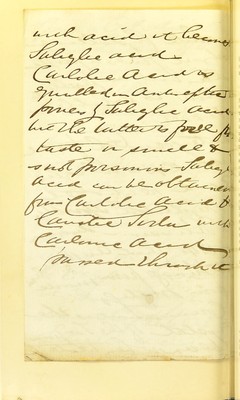 with acid it becomes
Salicylic acid
Carbolic Acid is
equalled in Antiseptic
power by Salicylic acid
but the latter is free from
taste or smell &
is not poisonous Salicylic
acid can be obtained
from Carbolic acid &
Caustic Soda with
Carbonic acid
passed through it